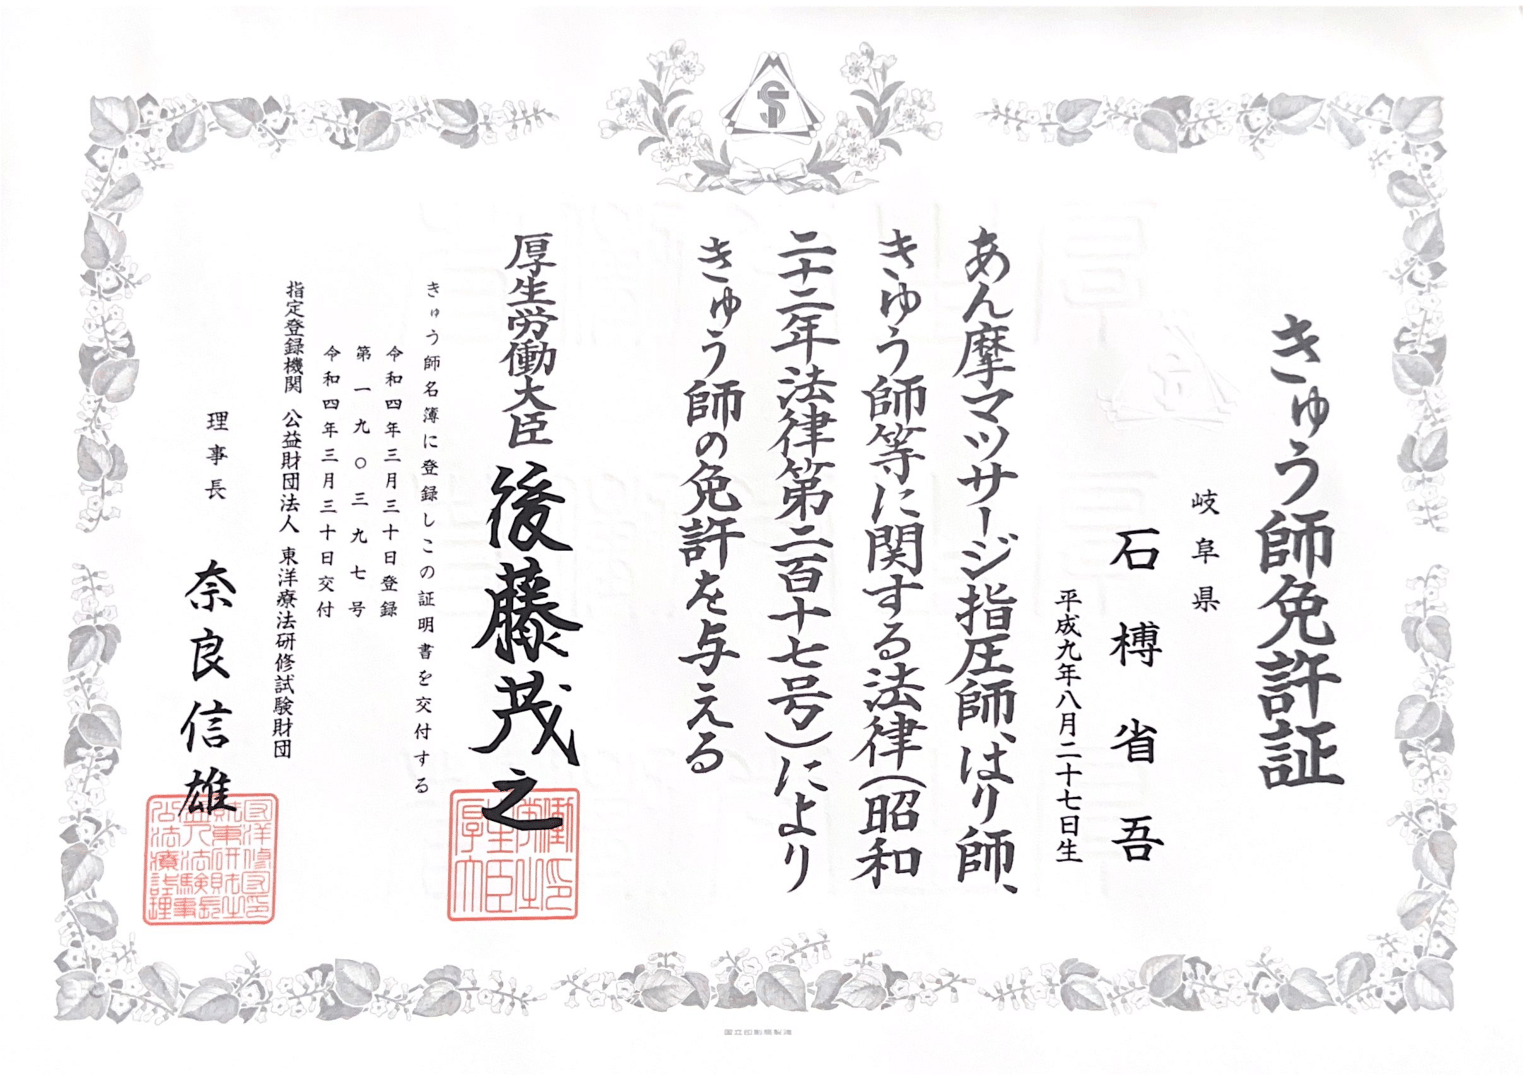 きゅう師免許証
岐阜県
石榑省吾
平成九年八月二十七日生
あん摩マツサージ指圧師、はり師、
きゆう師等に関する法律(昭和
二十二年法律第二百十七号)により
きゅう師の免許を与える
厚生労働大臣 後藤茂之
きゅう師名簿に登録しこの証明書を交付する
令和四年三月三十日登録
第一九〇三九七号
令和四年三月三十日交付
指定登録機関 公益財団法人 東洋療法研修試験財団
理事長 奈良信雄
国立印刷局製造